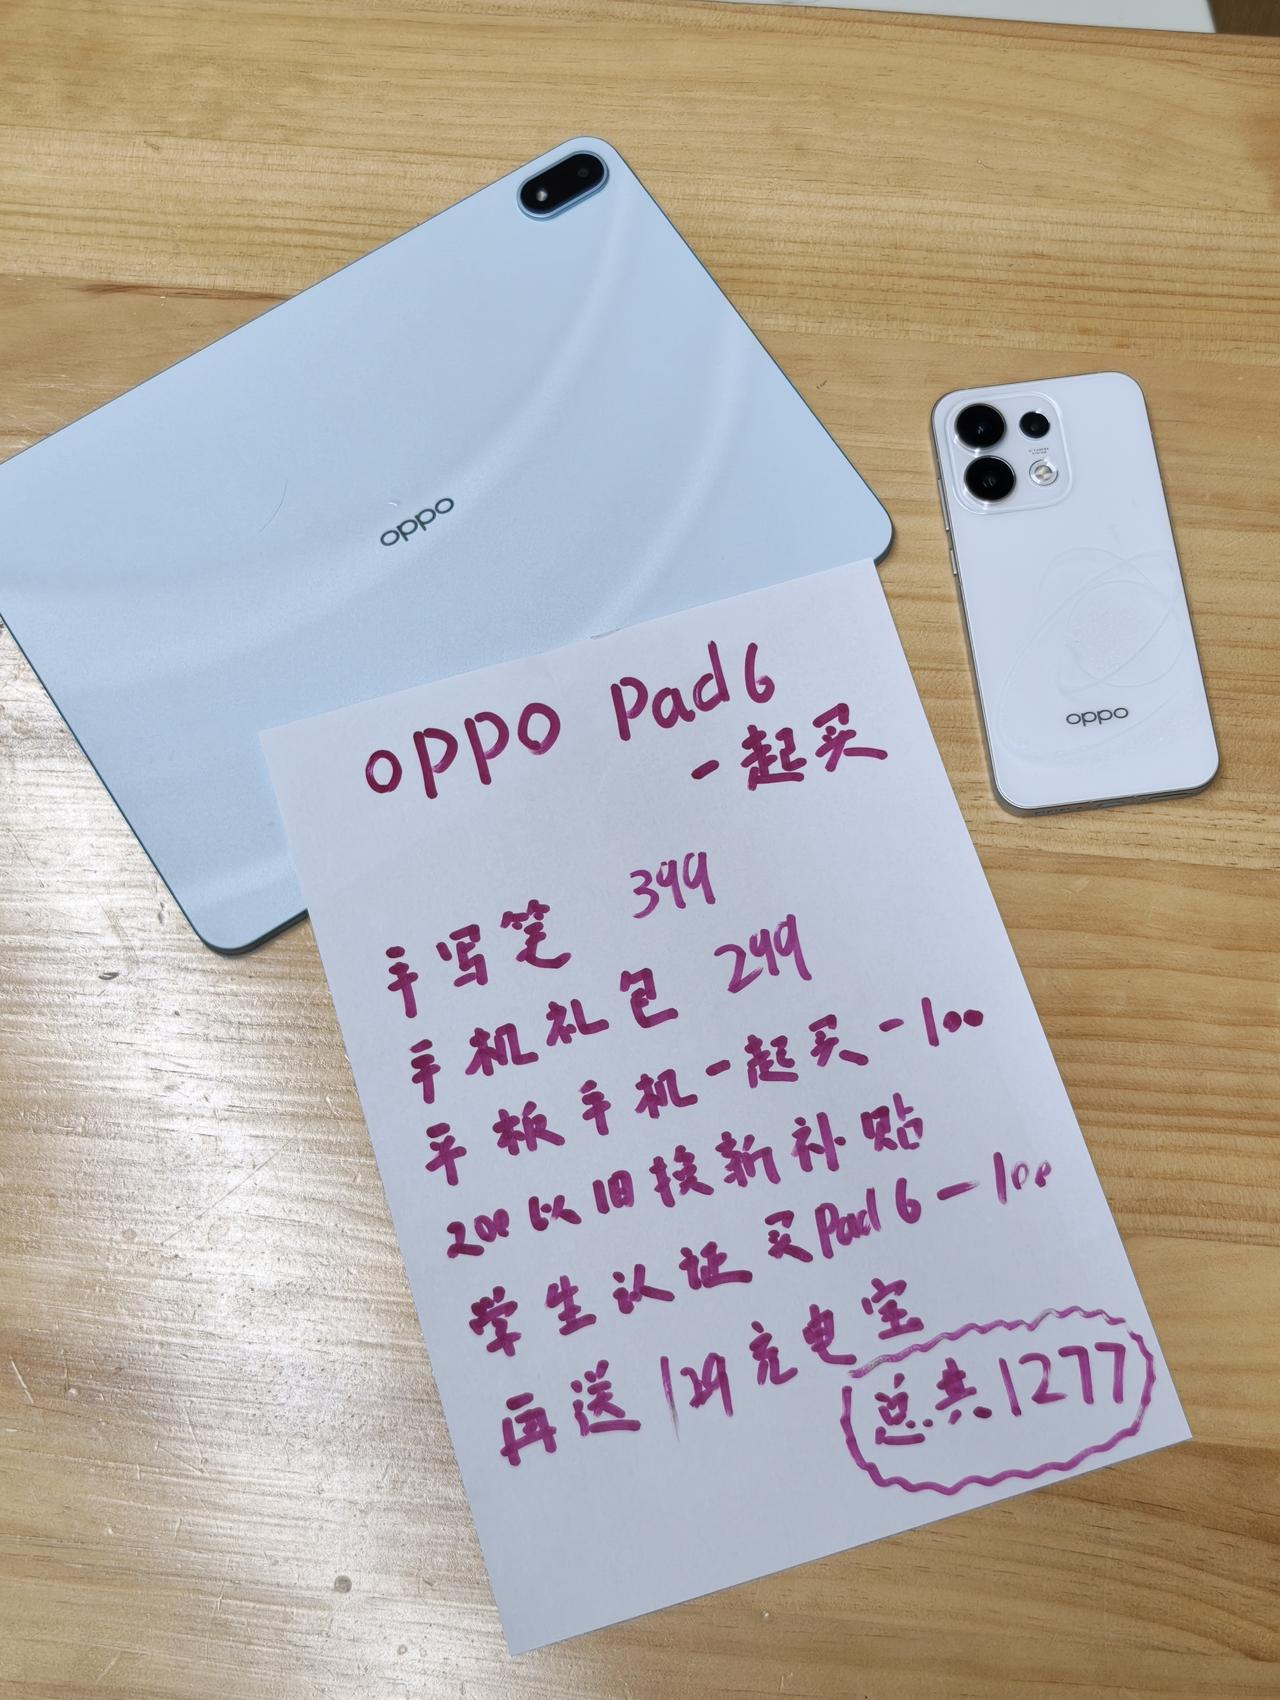 oppo
oppo
OPPO Pad 6
一起买
手写笔 399
手机礼包 299
平板手机一起买 -100
200 以旧换新补贴
学生认证 买Pad 6 - 100
再送 129 充电宝
总共1277